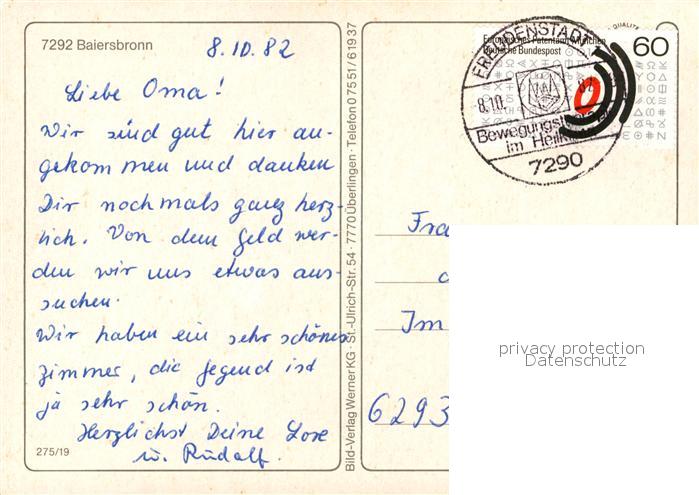 7292 Baiersbronn
8.10.82
Liebe Oma!
Wir sind gut hier an-
gekommen und danken
Dir nochmals ganz herz-
lich. Von dem Geld wer-
den wir uns etwas aus-
suchen.
Wir haben ein sehr schönes
Zimmer, die Gegend ist
ja sehr schön.
Herzlichst Deine Lore
u. Rudolf.
275/19
Bild-Verlag Werner KG · St.-Ulrich-Str. 54 · 7770 Überlingen · Telefon 07551/61937
QUALITÄT
Europäisches Patentamt München
Deutsche Bundespost
60
FREUDENSTADT
8.10. 82
Bewegungs
im Heilkl
7290
Fra
Im
6293
privacy protection
Datenschutz